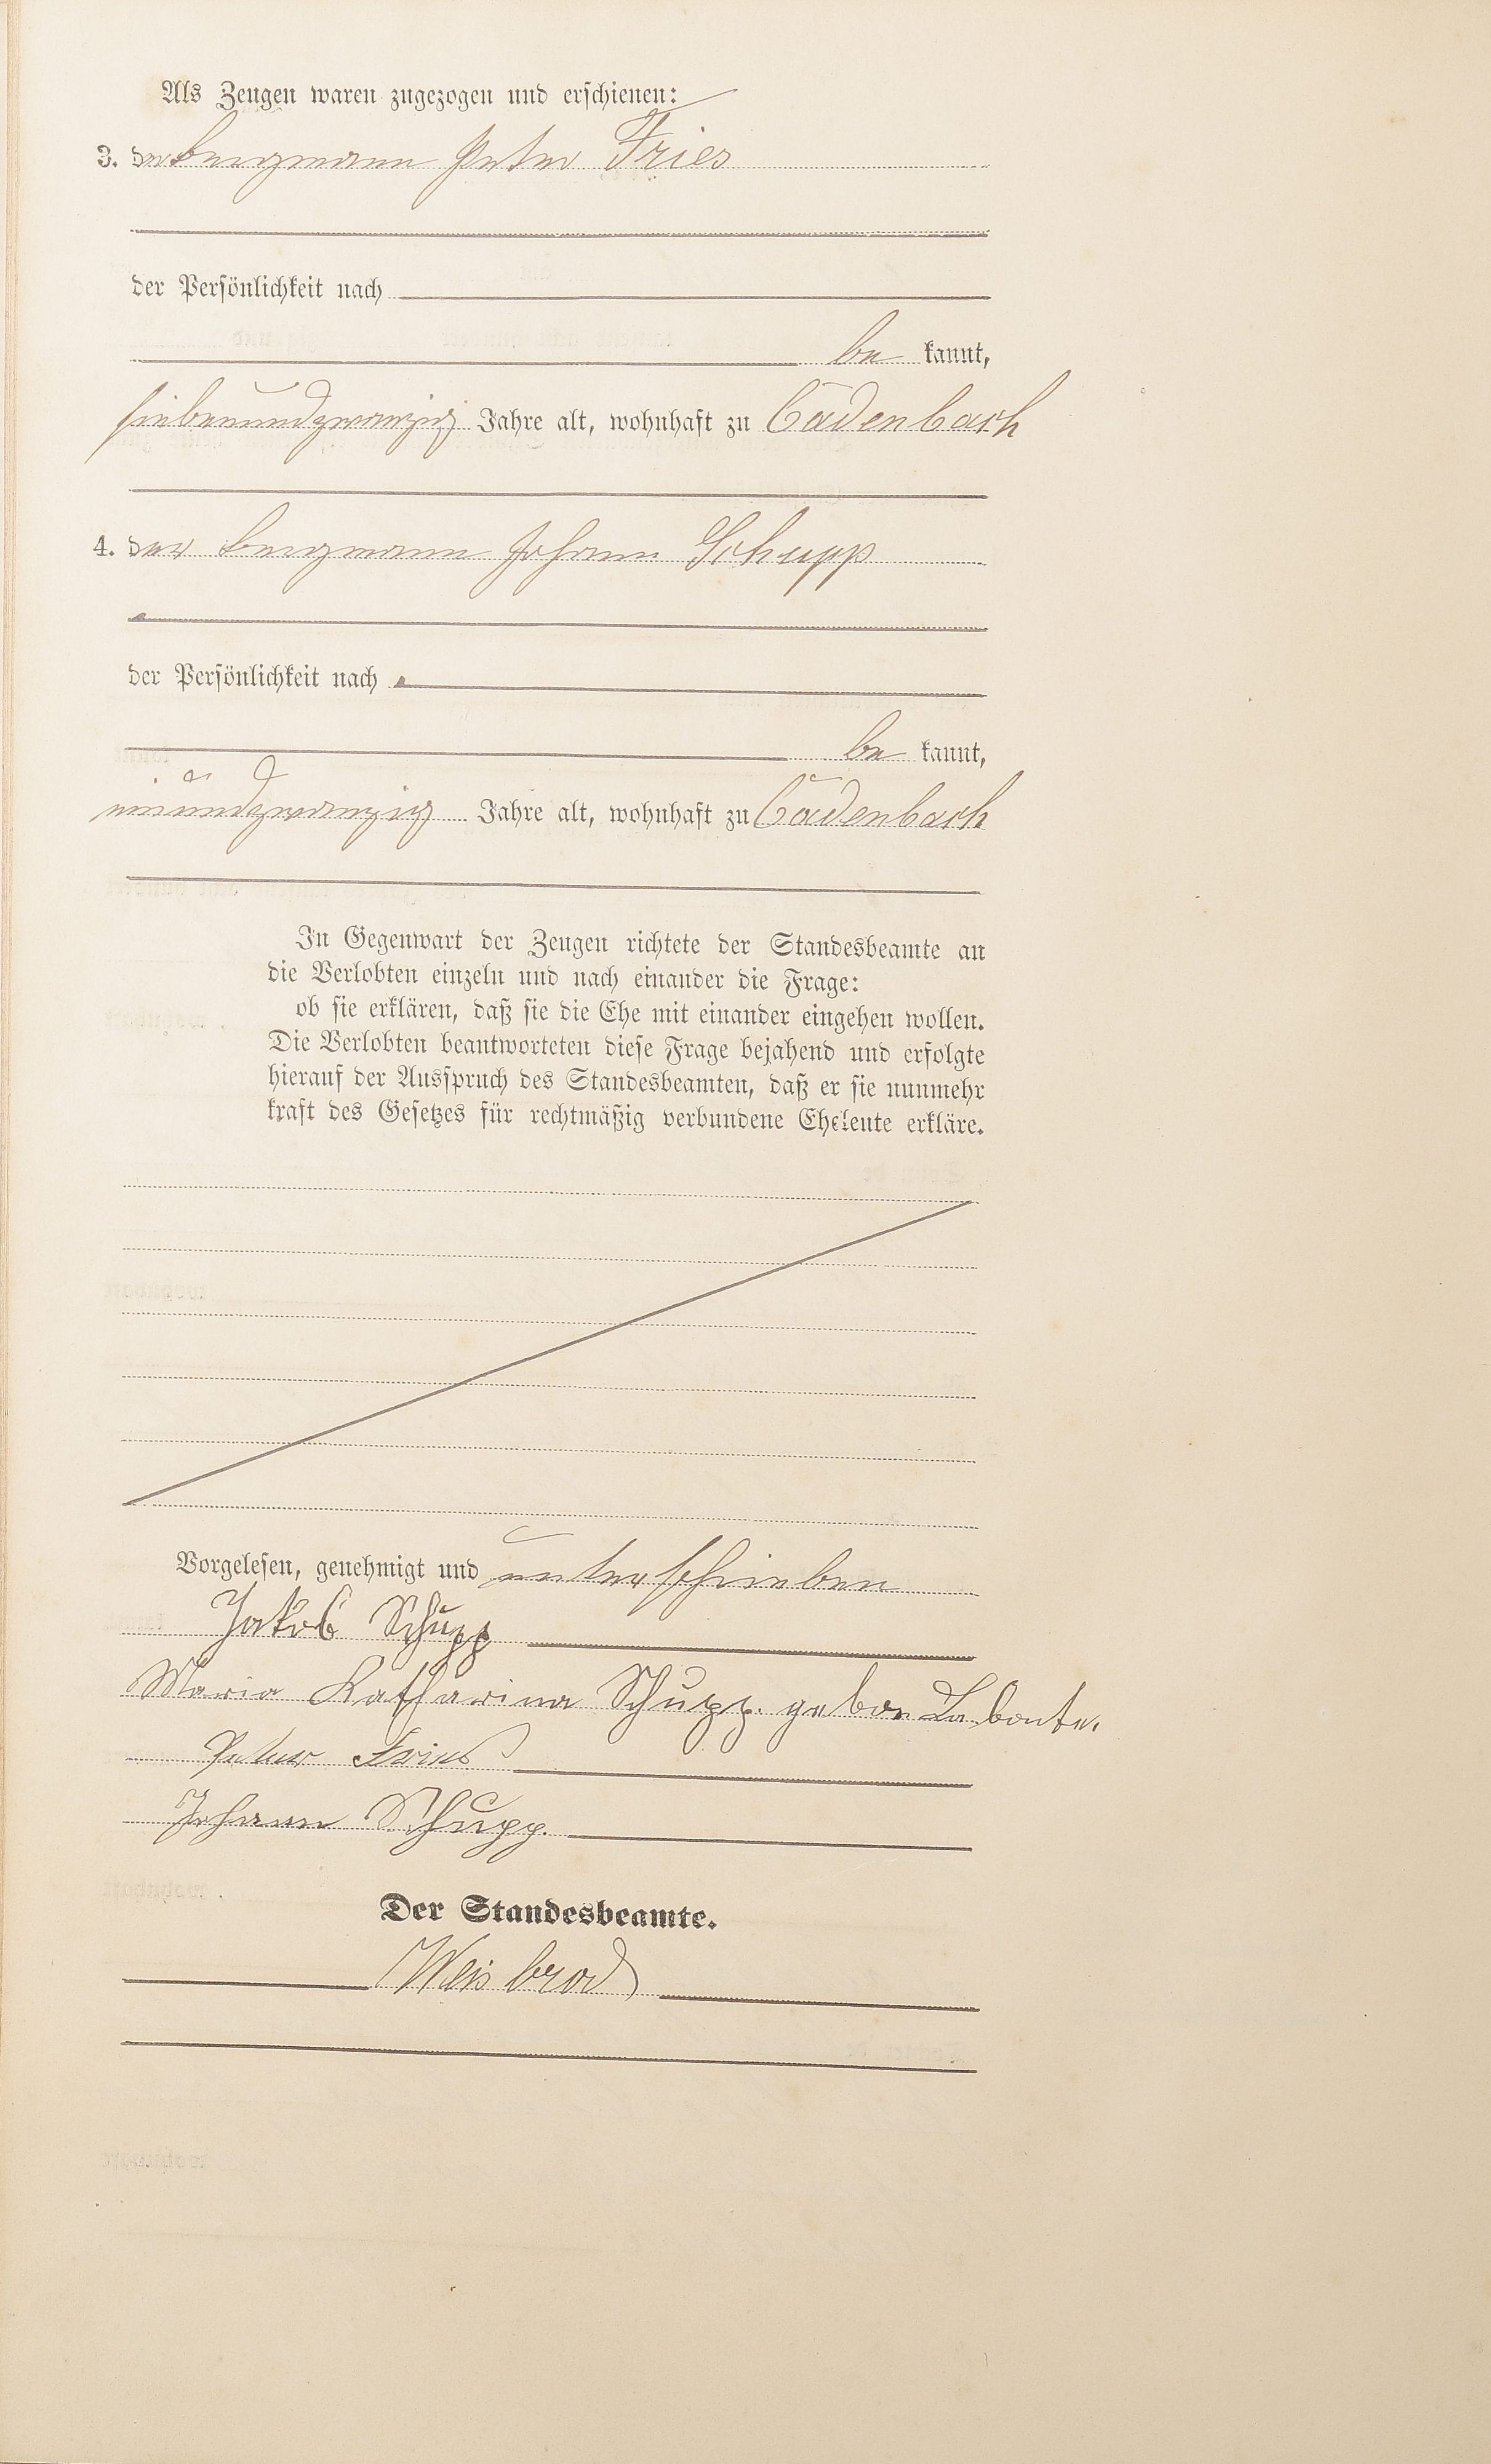 Als Zeugen waren zugezogen und erschienen:
3. der Bergmann Peter Fries
der Persönlichkeit nach
be kannt,
siebenundzwanzig Jahre alt, wohnhaft zu Cadenbach
4. der Bergmann Johann Schupp
der Persönlichkeit nach
be kannt,
Jahre alt, wohnhaft zu Cadenbach
In Gegenwart der Zeugen richtete der Standesbeamte an
die Verlobten einzeln und nach einander die Frage:
ob sie erklären, daß sie die Ehe mit einander eingehen wollen.
Die Verlobten beantworteten diese Frage bejahend und erfolgte
hierauf der Ausspruch des Standesbeamten, daß er sie nunmehr
kraft des Gesetzes für rechtmäßig verbundene Eheleute erkläre.
Vorgelesen, genehmigt und unterschrieben
Jakob Schupp
Maria Katharina Schupp. gebor Labonte.
Peter Fries
Johann Schupp.
Der Standesbeamte.
Weisbrod